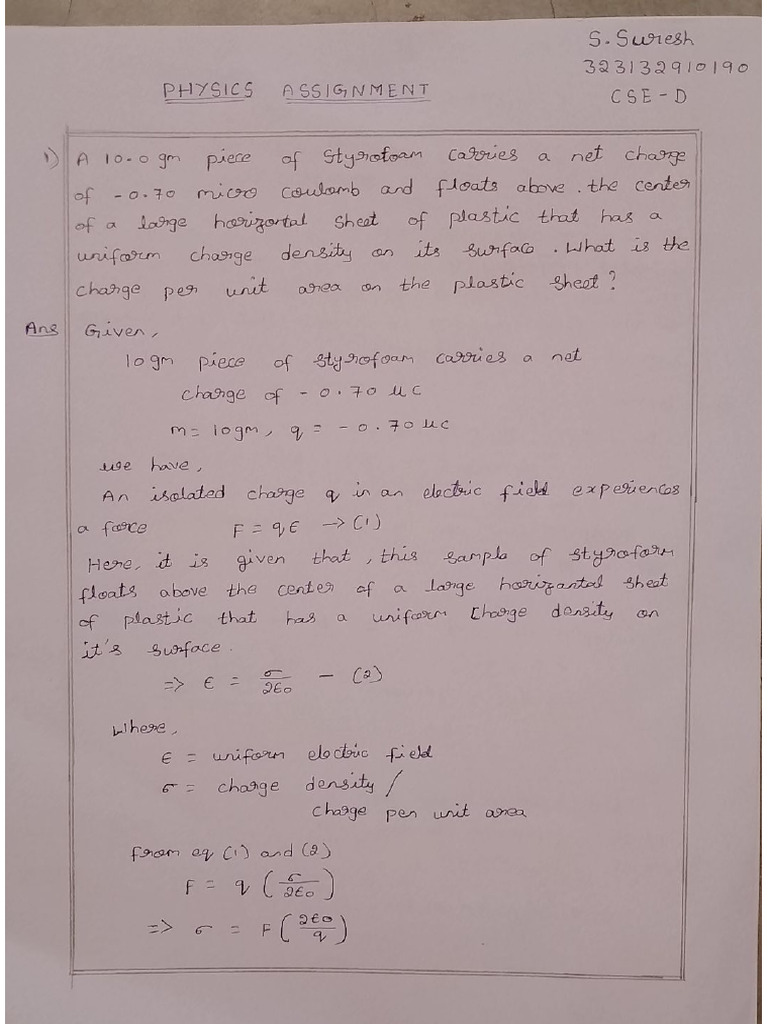 S. Suresh
323132910190
PHYSICS ASSIGNMENT
CSE-D
1) A 10.0 gm piece of Styrofoam carries a net charge
of -0.70 micro coulomb and floats above . the center
of a large horizontal sheet of plastic that has a
uniform charge density on its surface . What is the
charge per unit area on the plastic sheet ?
Ans Given,
10gm piece of styrofoam carries a net
charge of - 0.70 μc
m = 10gm, q = - 0.70 μc
we have,
An isolated charge q in an electric field experiences
a force F = qϵ → (1)
Here, it is given that , this sample of styroform
floats above the center of a large horizantal sheet
of plastic that has a uniform charge density on
it's surface.
=> ϵ = σ/2ϵ0 - (2)
Where,
ϵ = uniform electric field
σ = charge density /
charge per unit area
from eq (1) and (2)
F = q (σ/2ϵ0)
=> σ = F (2ϵ0/q)